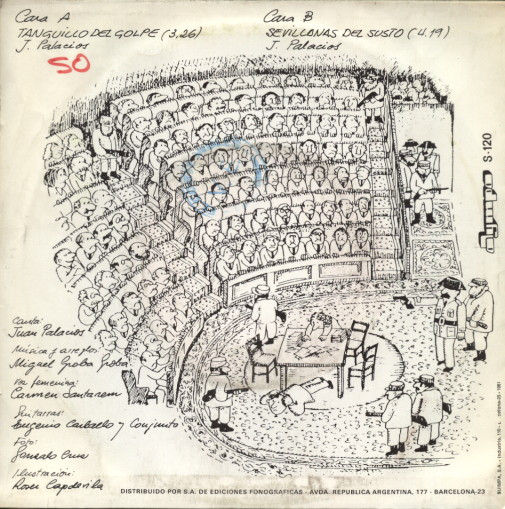 Cara A
TANGUILLO DEL GOLPE (3,26)
J. Palacios
SO
Cara B
SEVILLANAS DEL SUSTO (4.19)
J. Palacios
S-120
Canta:
Juan Palacios
Música y arreglos:
Miguel Groba Groba
Voz femenina:
Carmen Santanem
Guitarras:
Eugenio Carballo y Conjunto
Foto:
Gonzalo Cruz
Ilustración:
Roser Capdevila
DISTRIBUIDO POR S.A. DE EDICIONES FONOGRAFICAS - AVDA. REPUBLICA ARGENTINA, 177 - BARCELONA-23